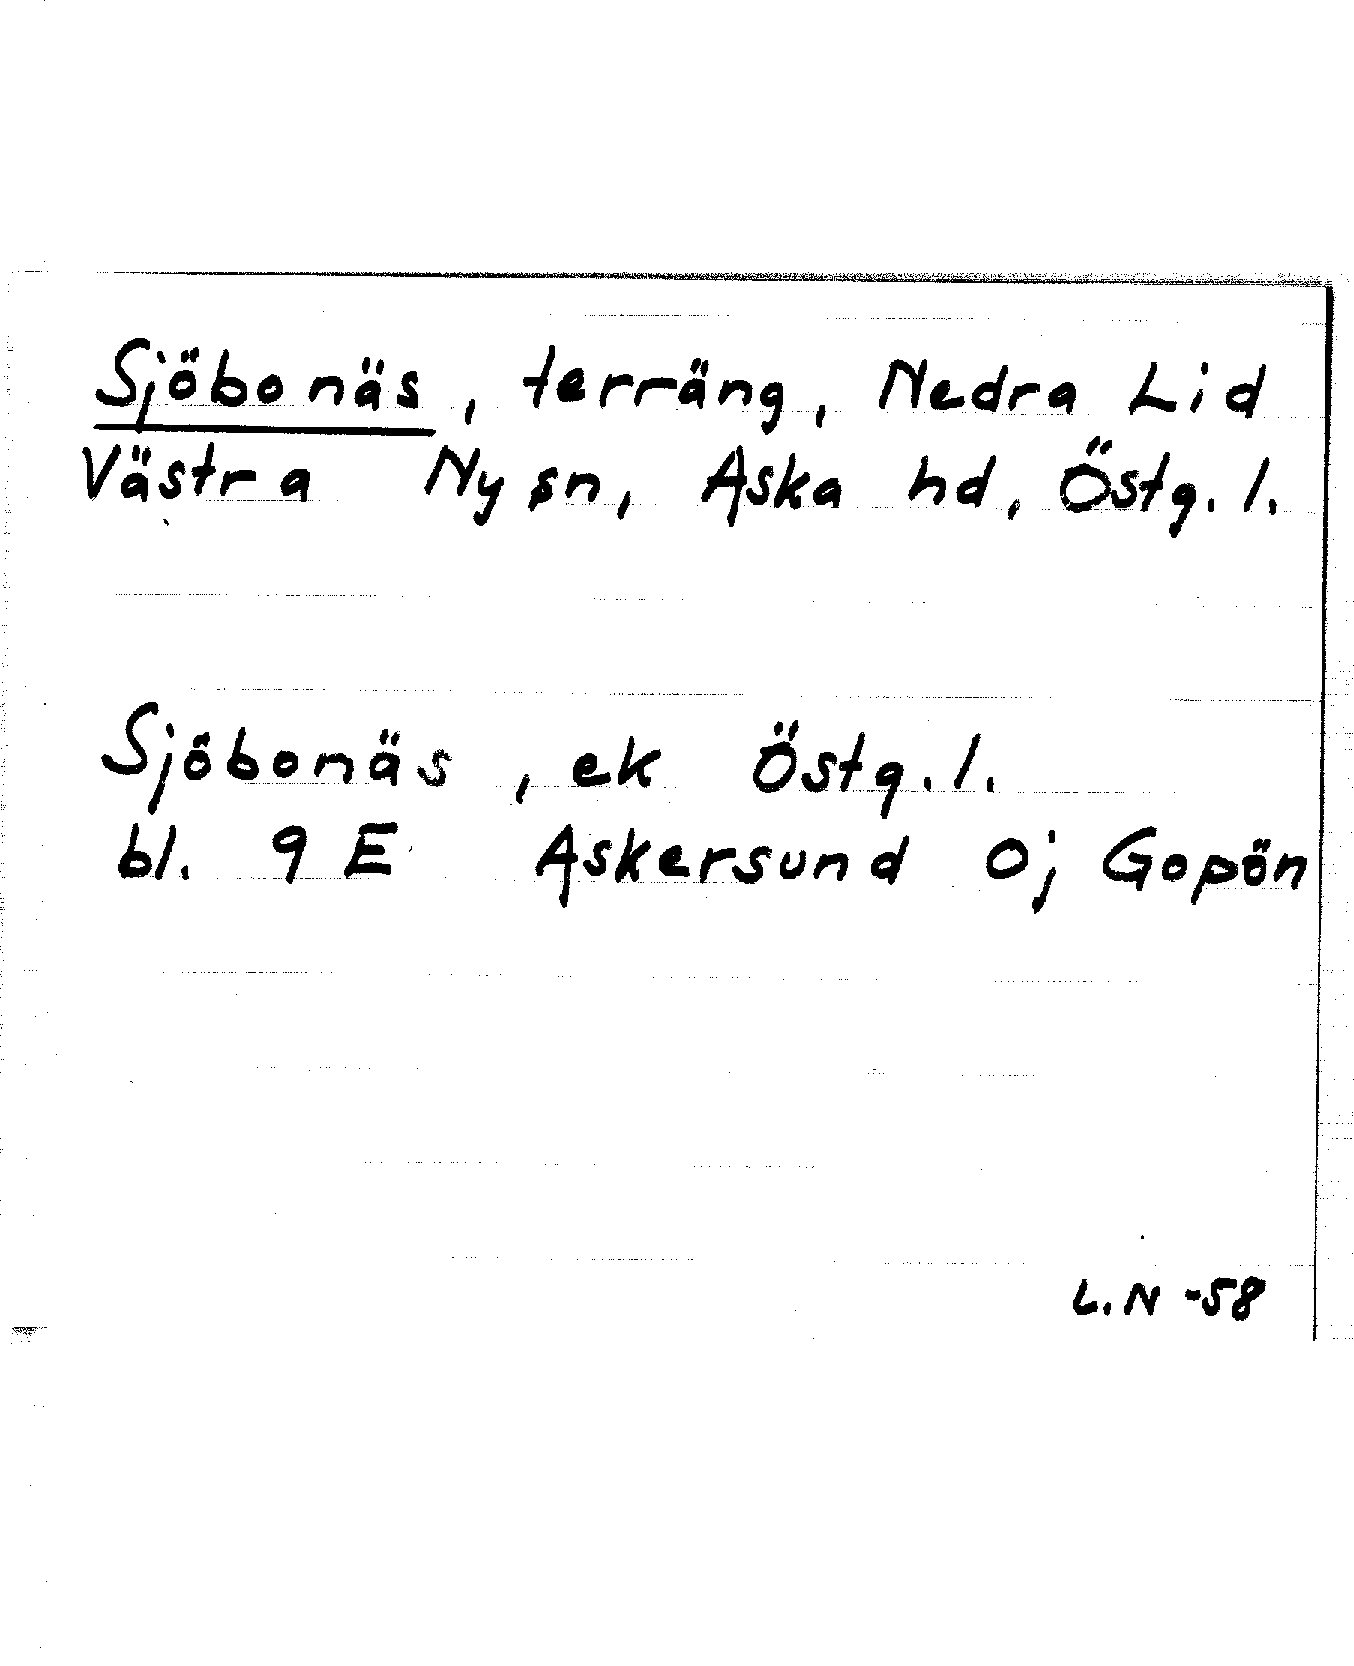 Sjöbonäs, terräng, Nedra Lid
Västra Ny sn, Aska hd, Östg. l.
Sjöbonäs, ek Östg. l.
bl. 9 E Askersund Oj Gopön
L.N -58